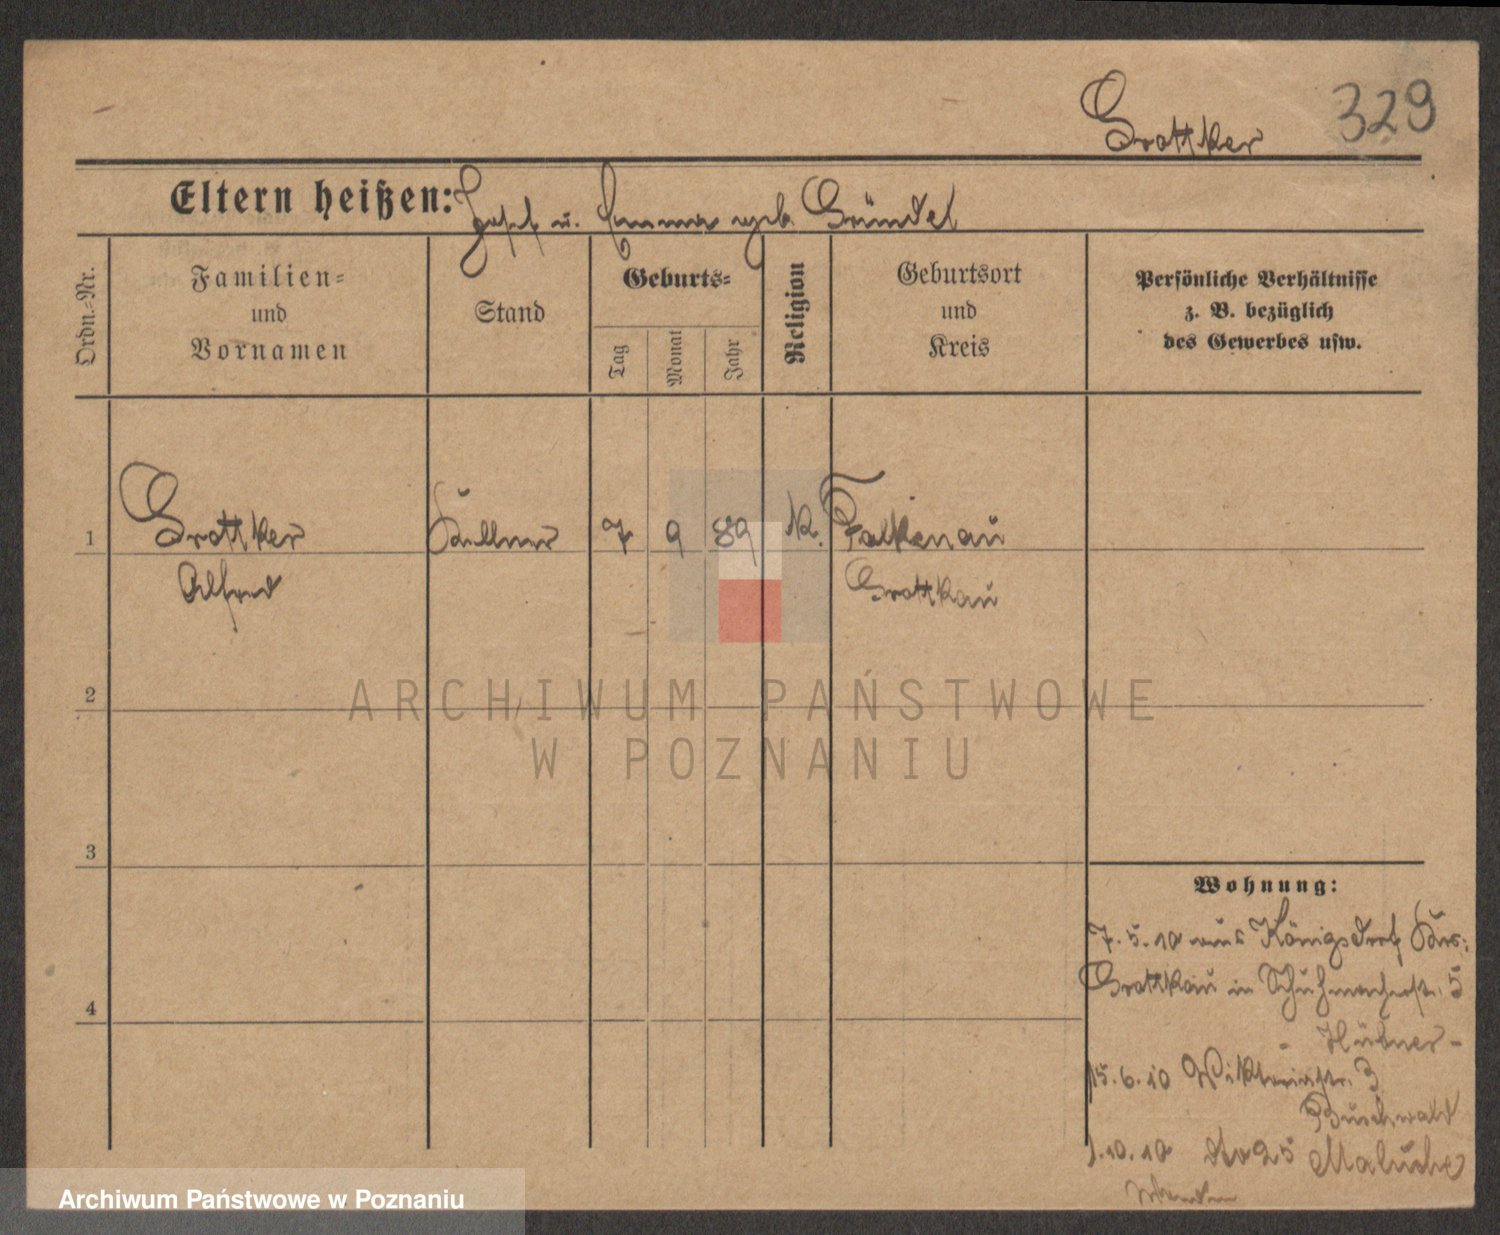 Grottker 329
Eltern heißen: Josef u. Emma geb. Gründel
Ordn.-Nr.
Familien-
und
Vornamen
Stand
Geburts-
Tag
Monat
Jahr
Religion
Geburtsort
und
Kreis
Persönliche Verhältnisse
z. B. bezüglich
des Gewerbes usw.
1 Grottker Kellner 7 9 89 K. Falkenau
Alfred Grottkau
2
ARCHIWUM PAŃSTWOWE
W POZNANIU
3
Wohnung:
7.5.10 aus Königsdorf
Grottkau in Schuhmacherstr. 5
- Hübner -
15.6.10 Viktoriastr. 3
Buchwald
4
1.10.10 do 25
Archiwum Państwowe w Poznaniu